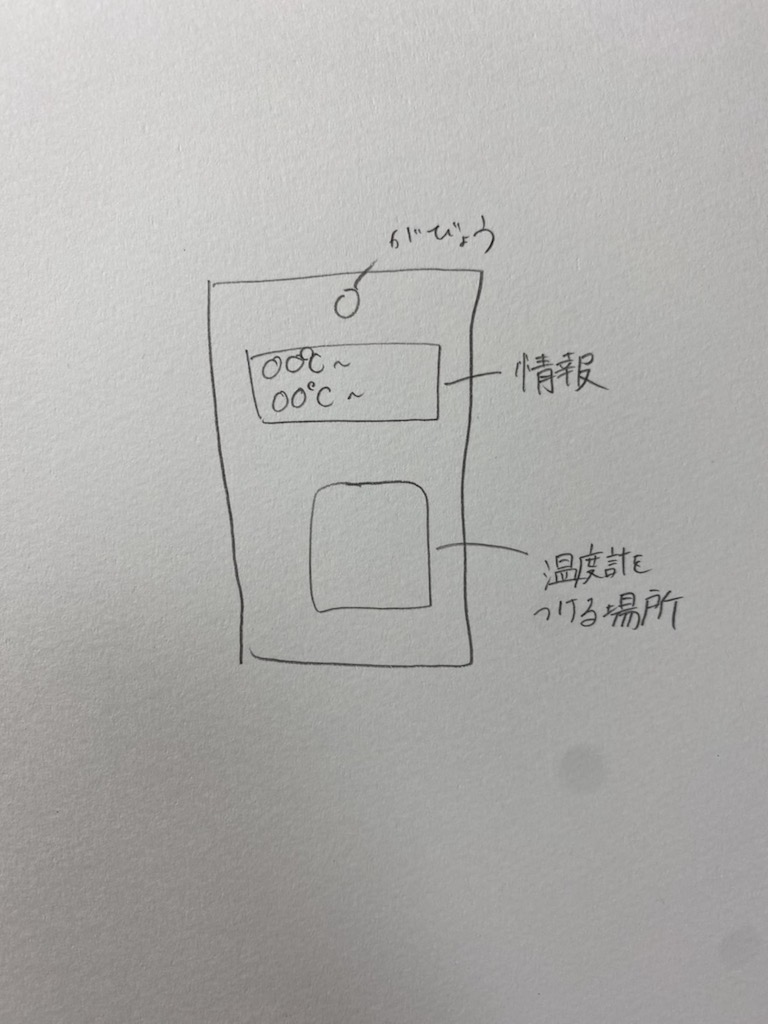 がびょう
○○℃～
○○℃～
情報
温度計を
つける場所